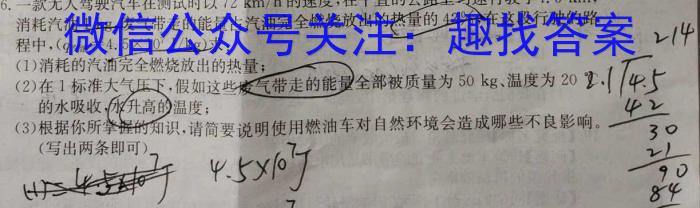 6. 一款无人驾驶汽车在测试时以 72 km/h 的速度,在平直的公路上匀速行驶了
微信公众号关注:趣找答案
消耗汽油 废气带走的能量是汽油完全燃烧放出的热量的 在这段行驶路
程中,(
(1)消耗的汽油完全燃烧放出的热量;
(2)在1标准大气压下,假如这些废气带走的能量全部被质量为 50 kg、温度为 20
的水吸收,水升高的温度;
(3)根据你所掌握的知识,请简要说明使用燃油车对自然环境会造成哪些不良影响。
(写出两条即可)
(1) 4.5×10⁷J
4.5×10⁷J
214
2.1 4.5
42
30
21
90
84